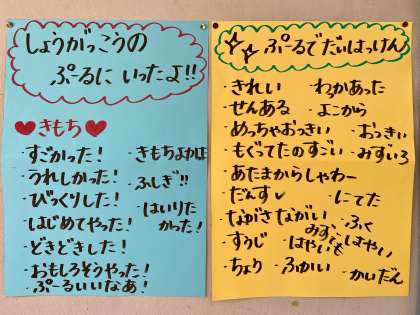 しょうがっこうの
ぷーるに いったよ!!
きもち
・すごかった!
・うれしかった!
・びっくりした!
・はじめてやった!
・どきどきした!
・おもしろそうやった!
・ぷーるいいなあ!
・きもちよかった
・ふしぎ!!
・はいりた
かった!
ぷーるでだいはっけん
・きれい
・わっかあった
・せんある
・よこから
・めっちゃおっきい
・おっきい
・もぐってたのすごい
・みずいろ
・あたまからしゃわー
・だんす
・にてた
・ながさながい
・ふく
・すうじ
・みずてっ
はやいも
・はやい
・ちょり
・ふかい
・かいだん